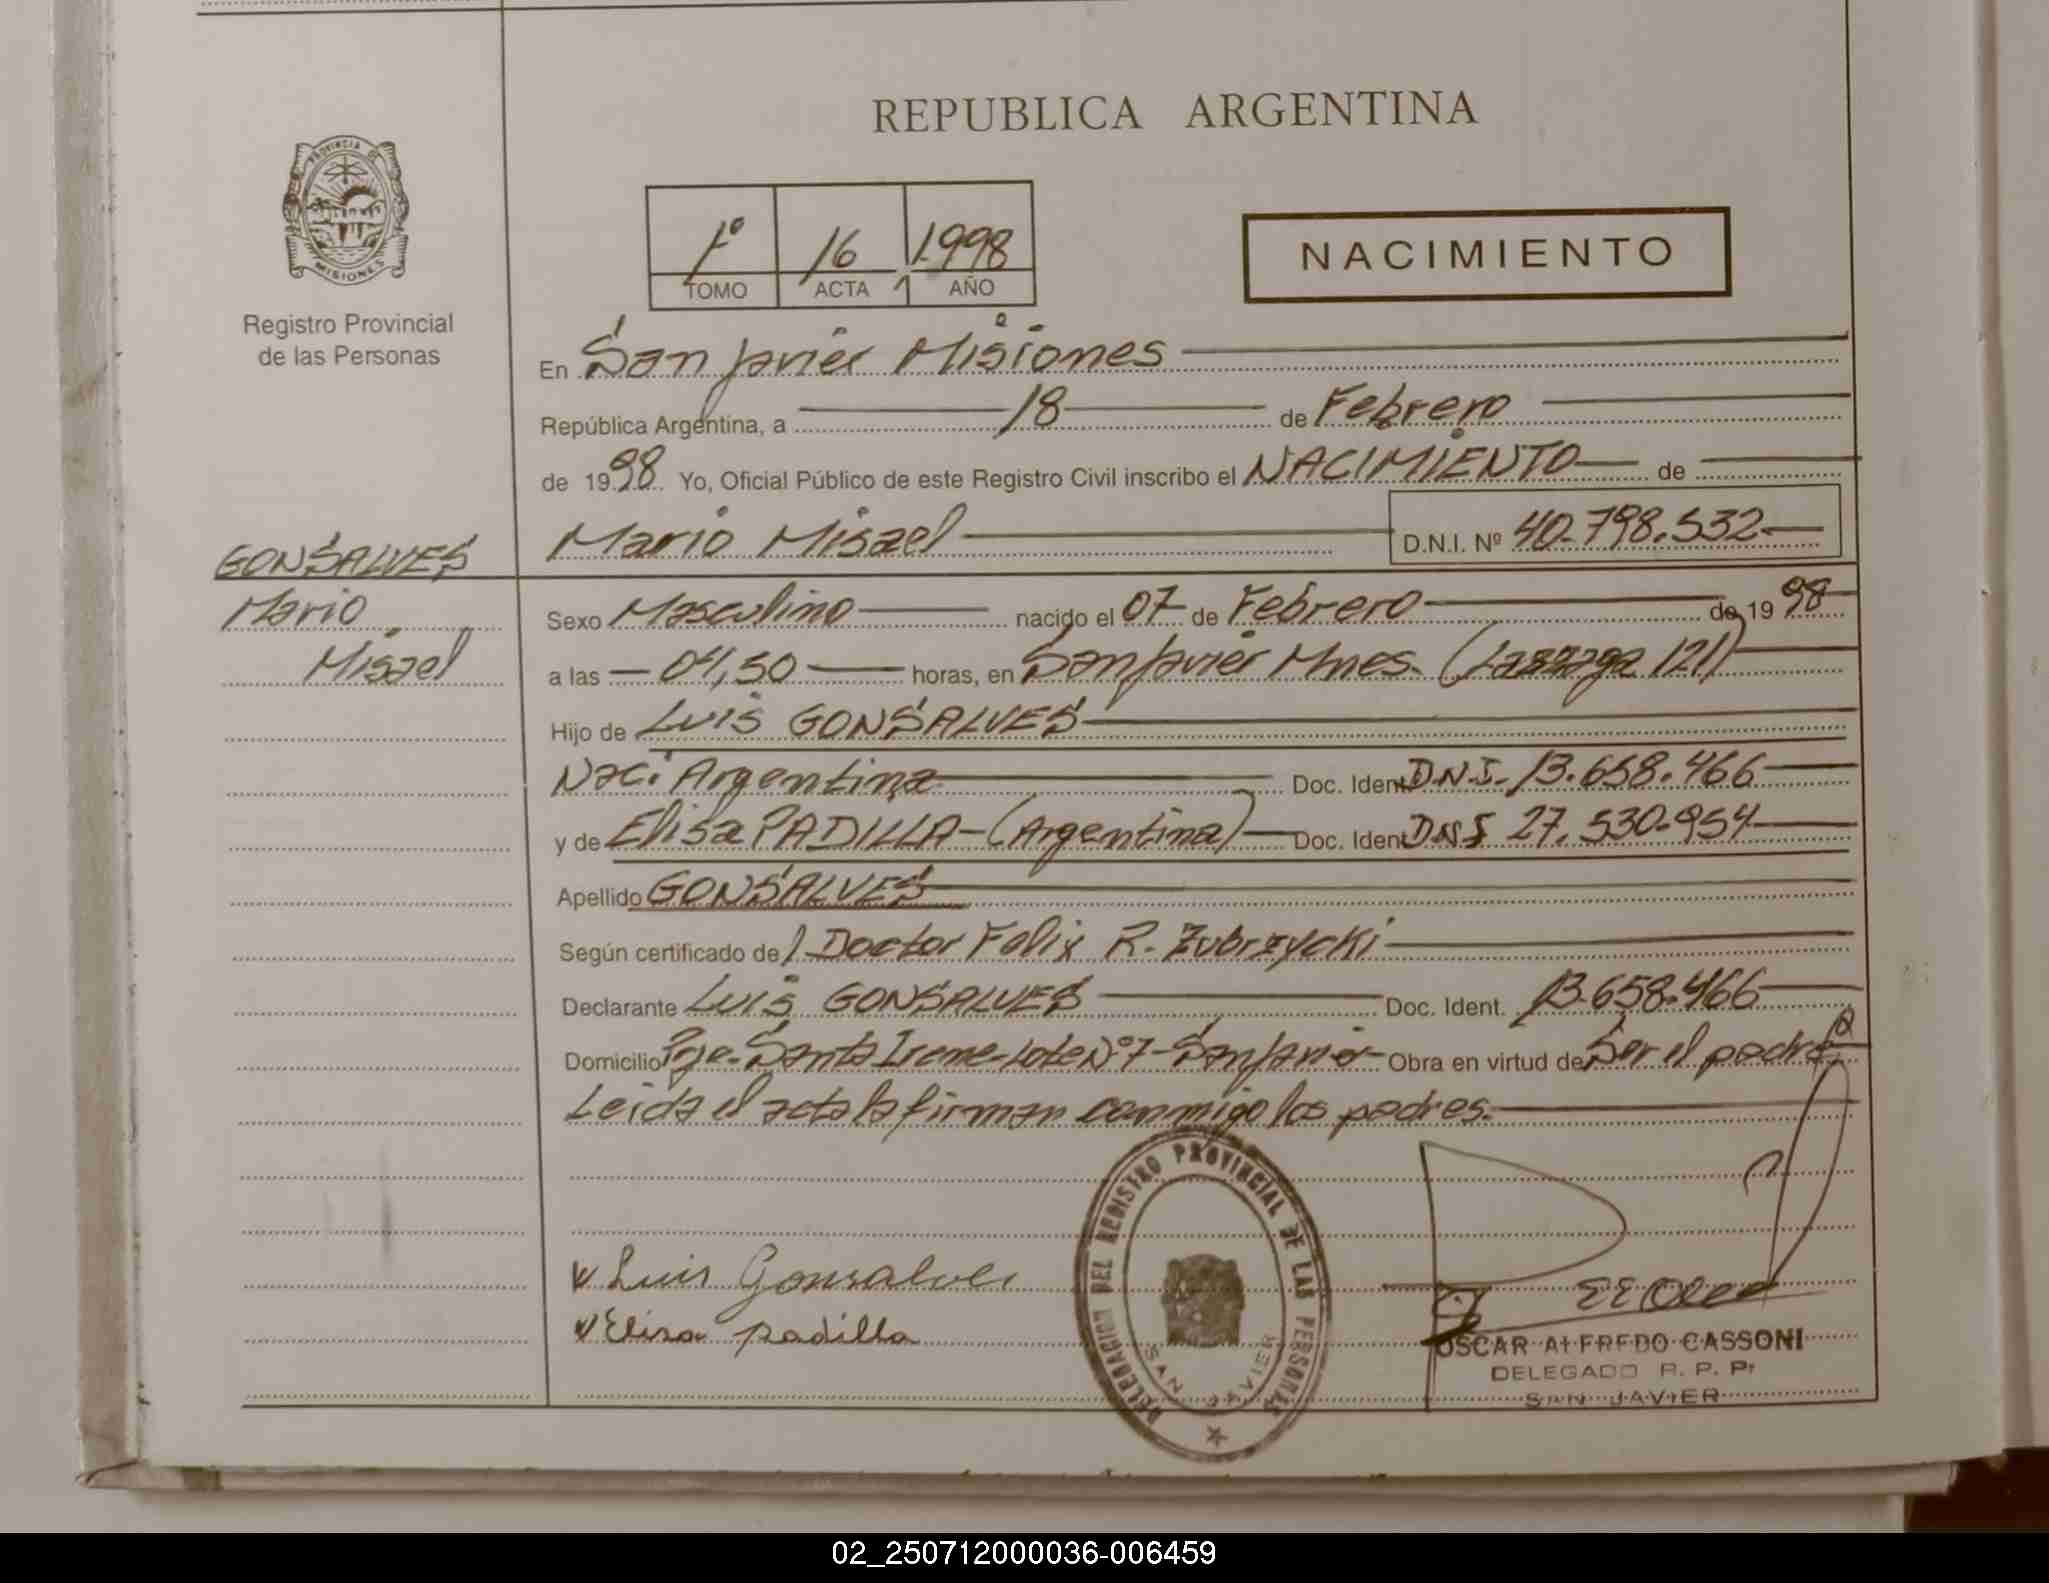 REPUBLICA ARGENTINA
PROVINCIA DE
MISIONES
Registro Provincial
de las Personas
1º 16 1.998
TOMO ACTA AÑO
NACIMIENTO
En San Javier Misiones
República Argentina, a 18 de Febrero
de 1998 Yo, Oficial Público de este Registro Civil inscribo el NACIMIENTO de
Mario Misael D.N.I. Nº 40.798.532
GONSALVES
Mario
Misael
Sexo Masculino nacido el 07 de Febrero de 1998
a las 04,50 horas, en San Javier Mnes. (Lazzaga 121)
Hijo de LUIS GONSALVES
Nac. Argentina Doc. Ident. D.N.I. 13.658.466
y de Elisa PADILLA - (Argentina) Doc. Ident. D.N.I 27.530.954
Apellido GONSALVES
Según certificado de Doctor Felix R. Zubrzycki
Declarante LUIS GONSALVES Doc. Ident. 13.658.466
Domicilio Pje. Santa Irene - Lote Nº 7 - San Javier - Obra en virtud de Ser el padre
Leida el acta la firman conmigo los padres.
Luis Gonsalves
Elisa Padilla
DELEGACION DEL REGISTRO PROVINCIAL DE LAS PERSONAS
SAN JAVIER
OSCAR ALFREDO CASSONI
DELEGADO R. P. P.
SAN JAVIER
02_250712000036-006459